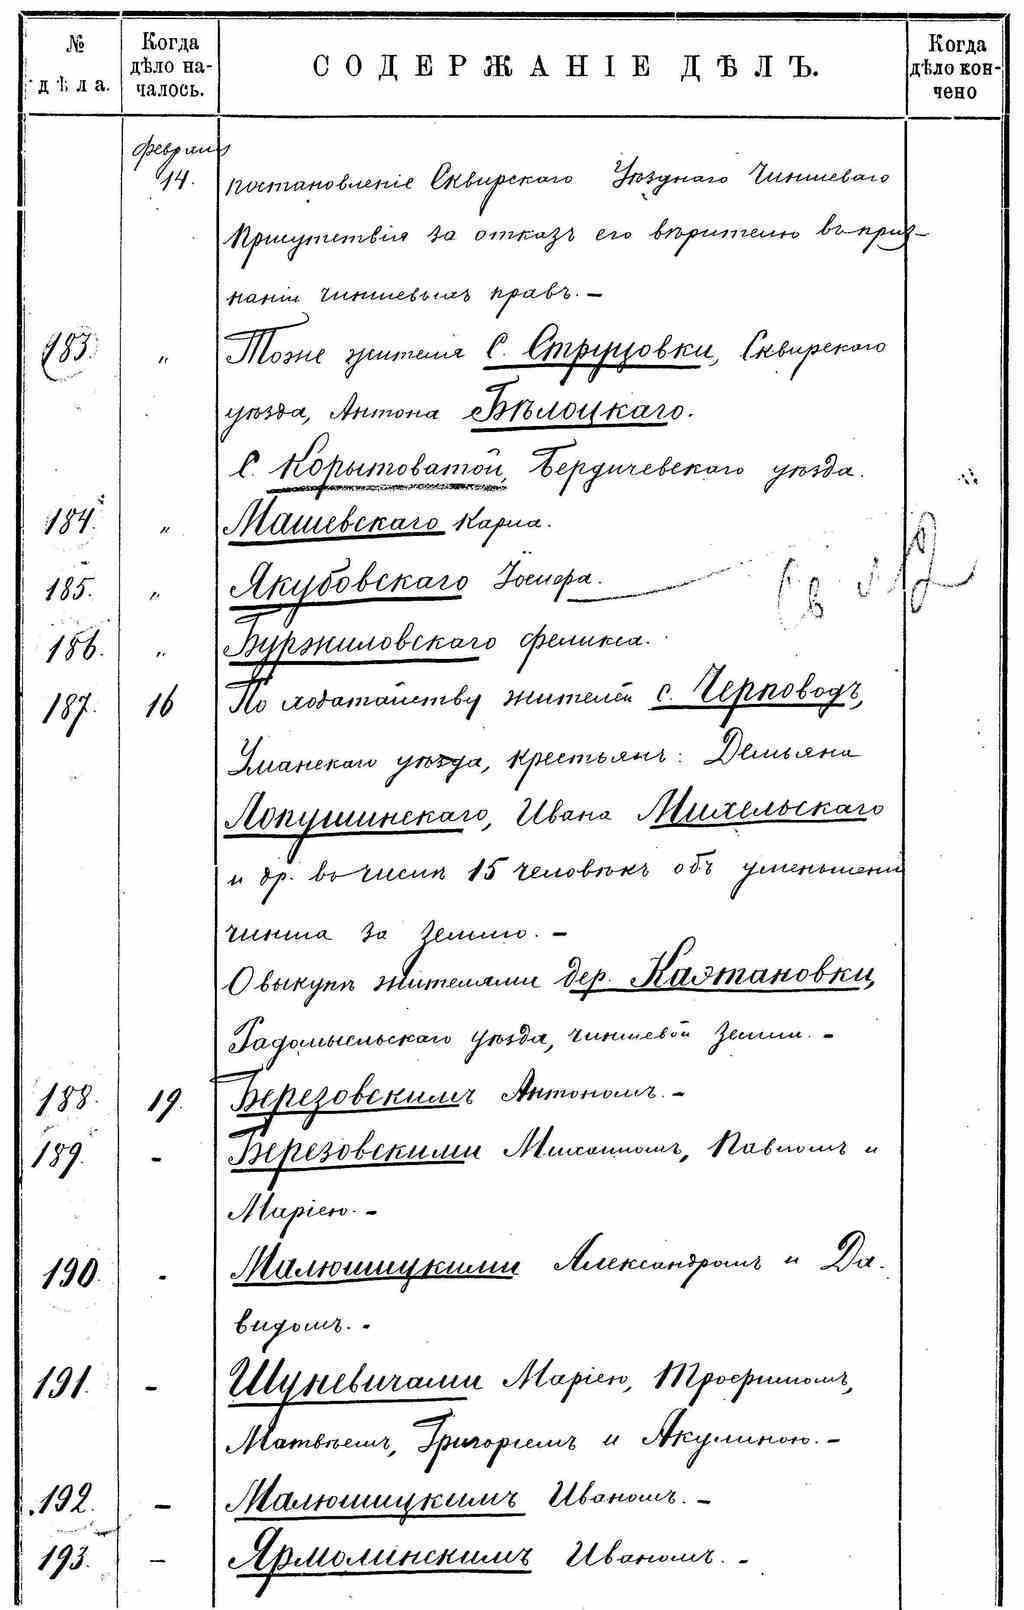 № дѣла.
Когда дѣло началось.
СОДЕРЖАНІЕ ДѢЛЪ.
Когда дѣло кончено
февраля
14. постановленіе Сквирскаго Уѣзднаго Чиншеваго
Присутствія за отказъ его вѣрителю въ приз-
наніи чиншевыхъ правъ. —
183. " Тоже жителя С. Струцовки, Сквирскаго
уѣзда, Антона Бѣлоцкаго.
С. Корытоватой, Бердичевскаго уѣзда.
184. " Машевскаго Карла.
185. " Якубовскаго Іосифа.
186. " Буржиловскаго Феликса.
187. 16 По ходатайству жителей с. Черповодъ,
Уманскаго уѣзда, крестьянъ: Демьяна
Лопушинскаго, Ивана Михельскаго
и др. въ числѣ 15 человѣкъ объ уменьшеніи
чинша за землю. —
О выкупѣ жителями дер. Каэтановки,
Радомысльскаго уѣзда, чиншевой земли. —
188. 19. Березовскимъ Антономъ. —
189. - Березовскими Михаиломъ, Павломъ и
Маріею. —
190. - Малюшицкими Александромъ и Да-
видомъ. -
191. - Шуневичами Маріею, Трофимомъ,
Матвѣемъ, Григоріемъ и Акулиною. —
192. - Малюшицкимъ Иваномъ. —
193. - Ярмолинскимъ Иваномъ. -